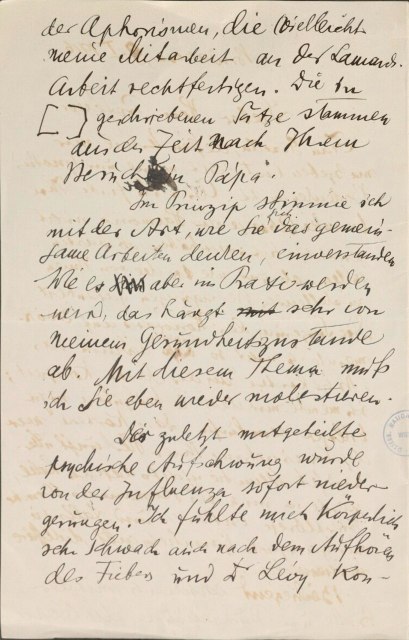 der Aphorismen, die vielleicht
meine Mitarbeit an der Lamarck-
Arbeit rechtfertigen. Die in
[ ] geschriebenen Sätze stammen
aus der Zeit nach Ihrem
Besuch in Pápa.
Im Prinzip stimme ich
mit der Art, wie Sie sich das gemein-
same Arbeiten denken, einverstanden
Wie es aber in Praxi werden
wird, das hängt sehr von
meinem Gesundheitszustande
ab. Mit diesem Thema muß
ich Sie eben wieder molestieren.
Der zuletzt mitgeteilte
psychische Aufschwung wurde
von der Influenza sofort nieder
gerungen. Ich fühlte mich Körperlich
sehr schwach auch nach dem Aufhören
des Fiebers und Dr Lévy kon-